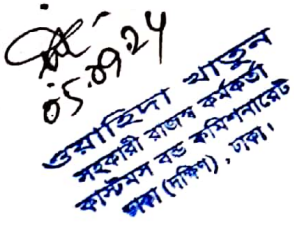 05.09.24
ওয়াহিদা খাতুন
সহকারী রাজস্ব কর্মকর্তা
কাস্টমস বন্ড কমিশনারেট
ঢাকা (দক্ষিণ), ঢাকা।